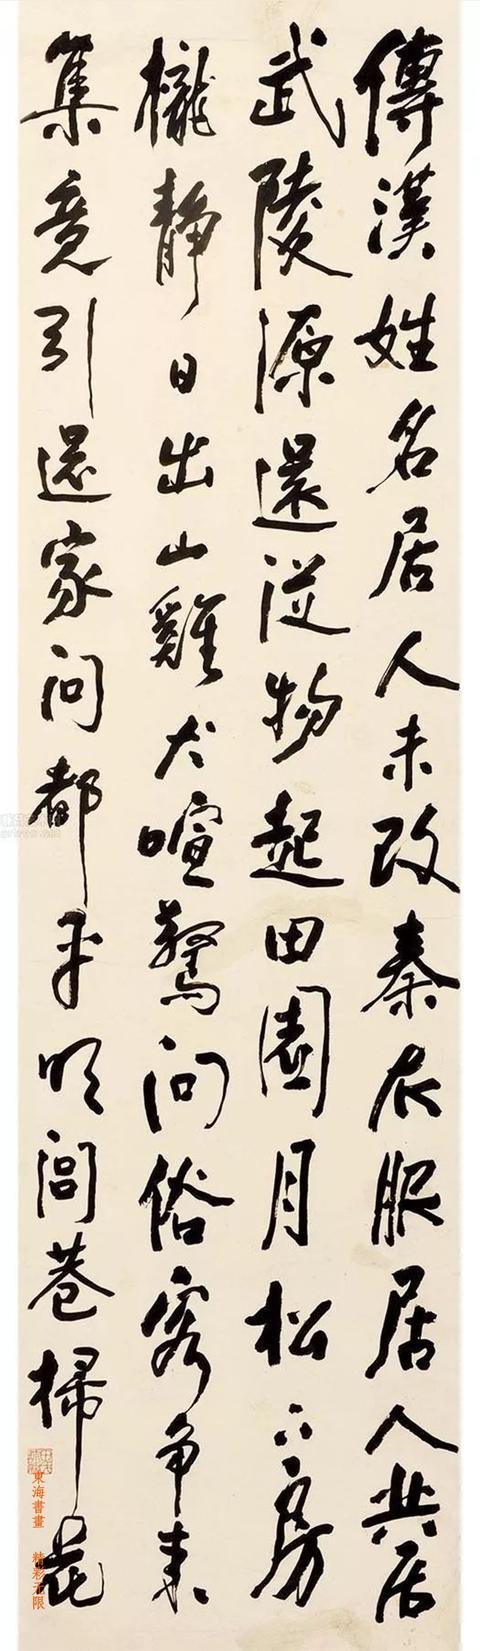 傳漢姓名居人未改秦衣服居人共居
武陵源還從物起田園月松下房
櫳靜日出山雞犬喧驚問俗客争来
集竟引還家問都平明閭巷掃花
東海書畫 精彩无限